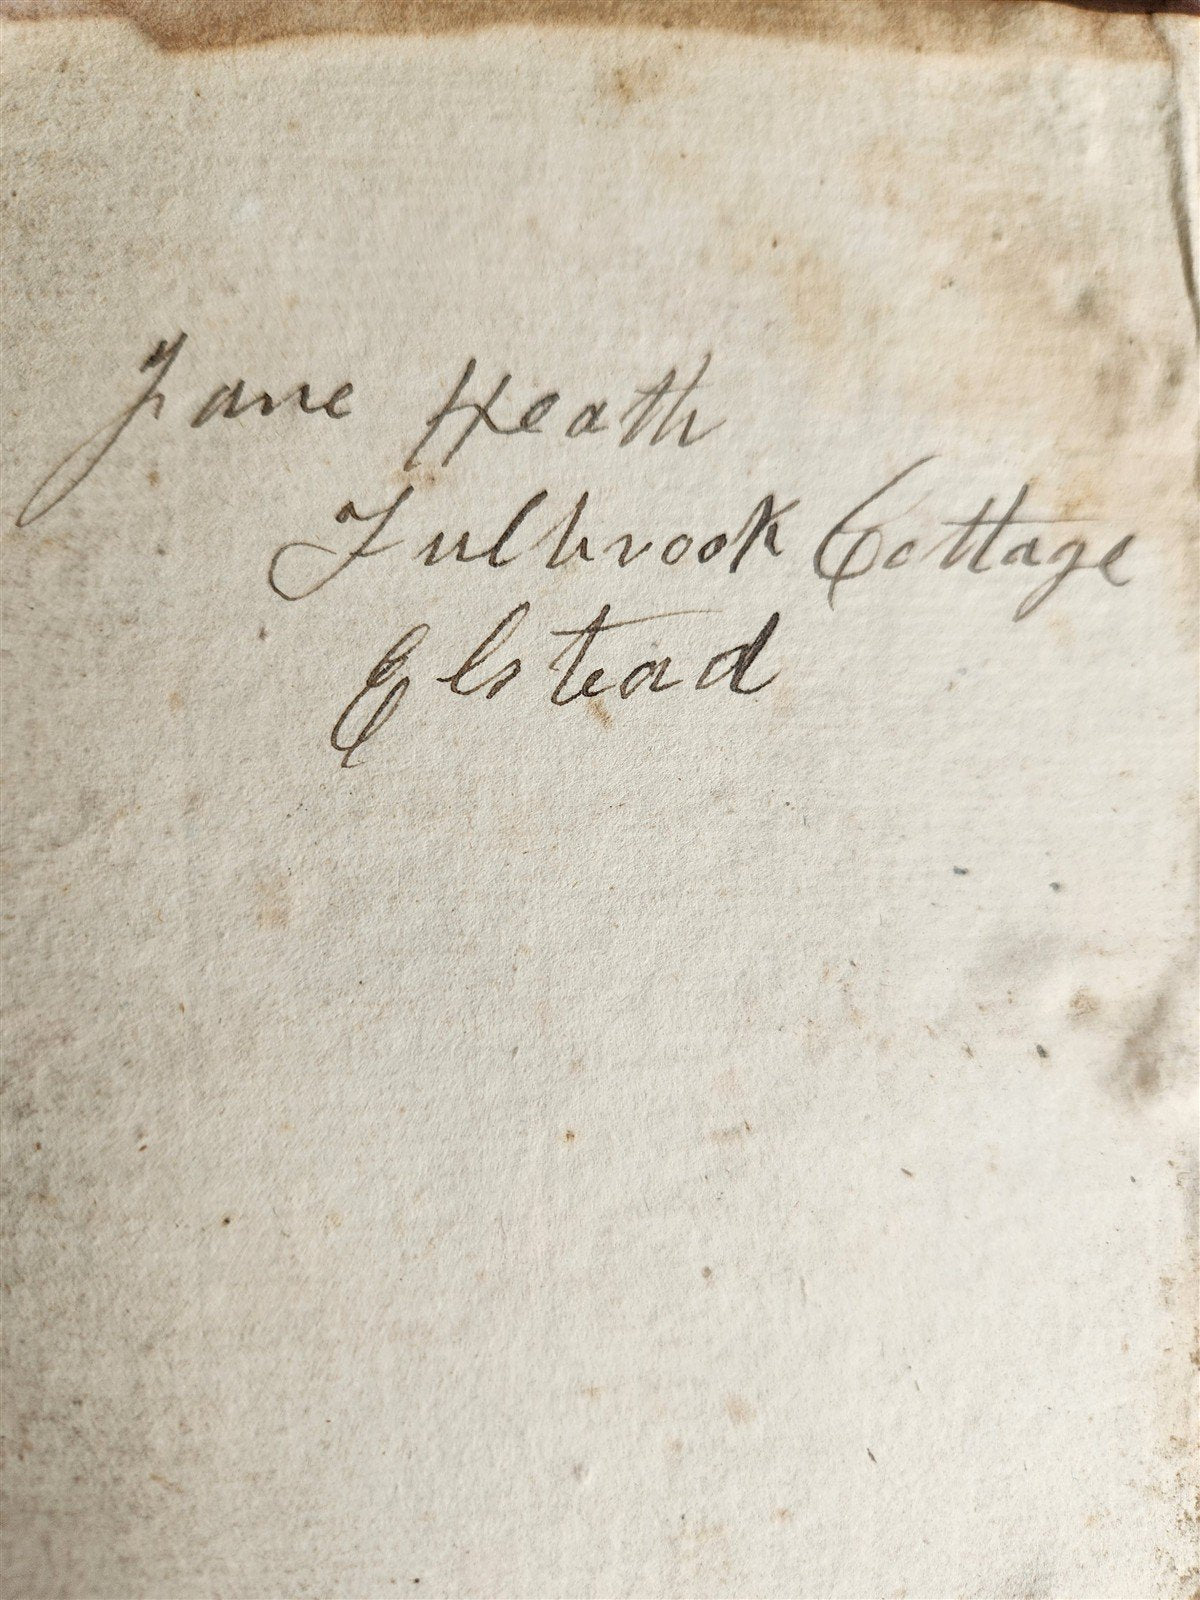 Jane Heath
Fulbrook Cottage
Elstead